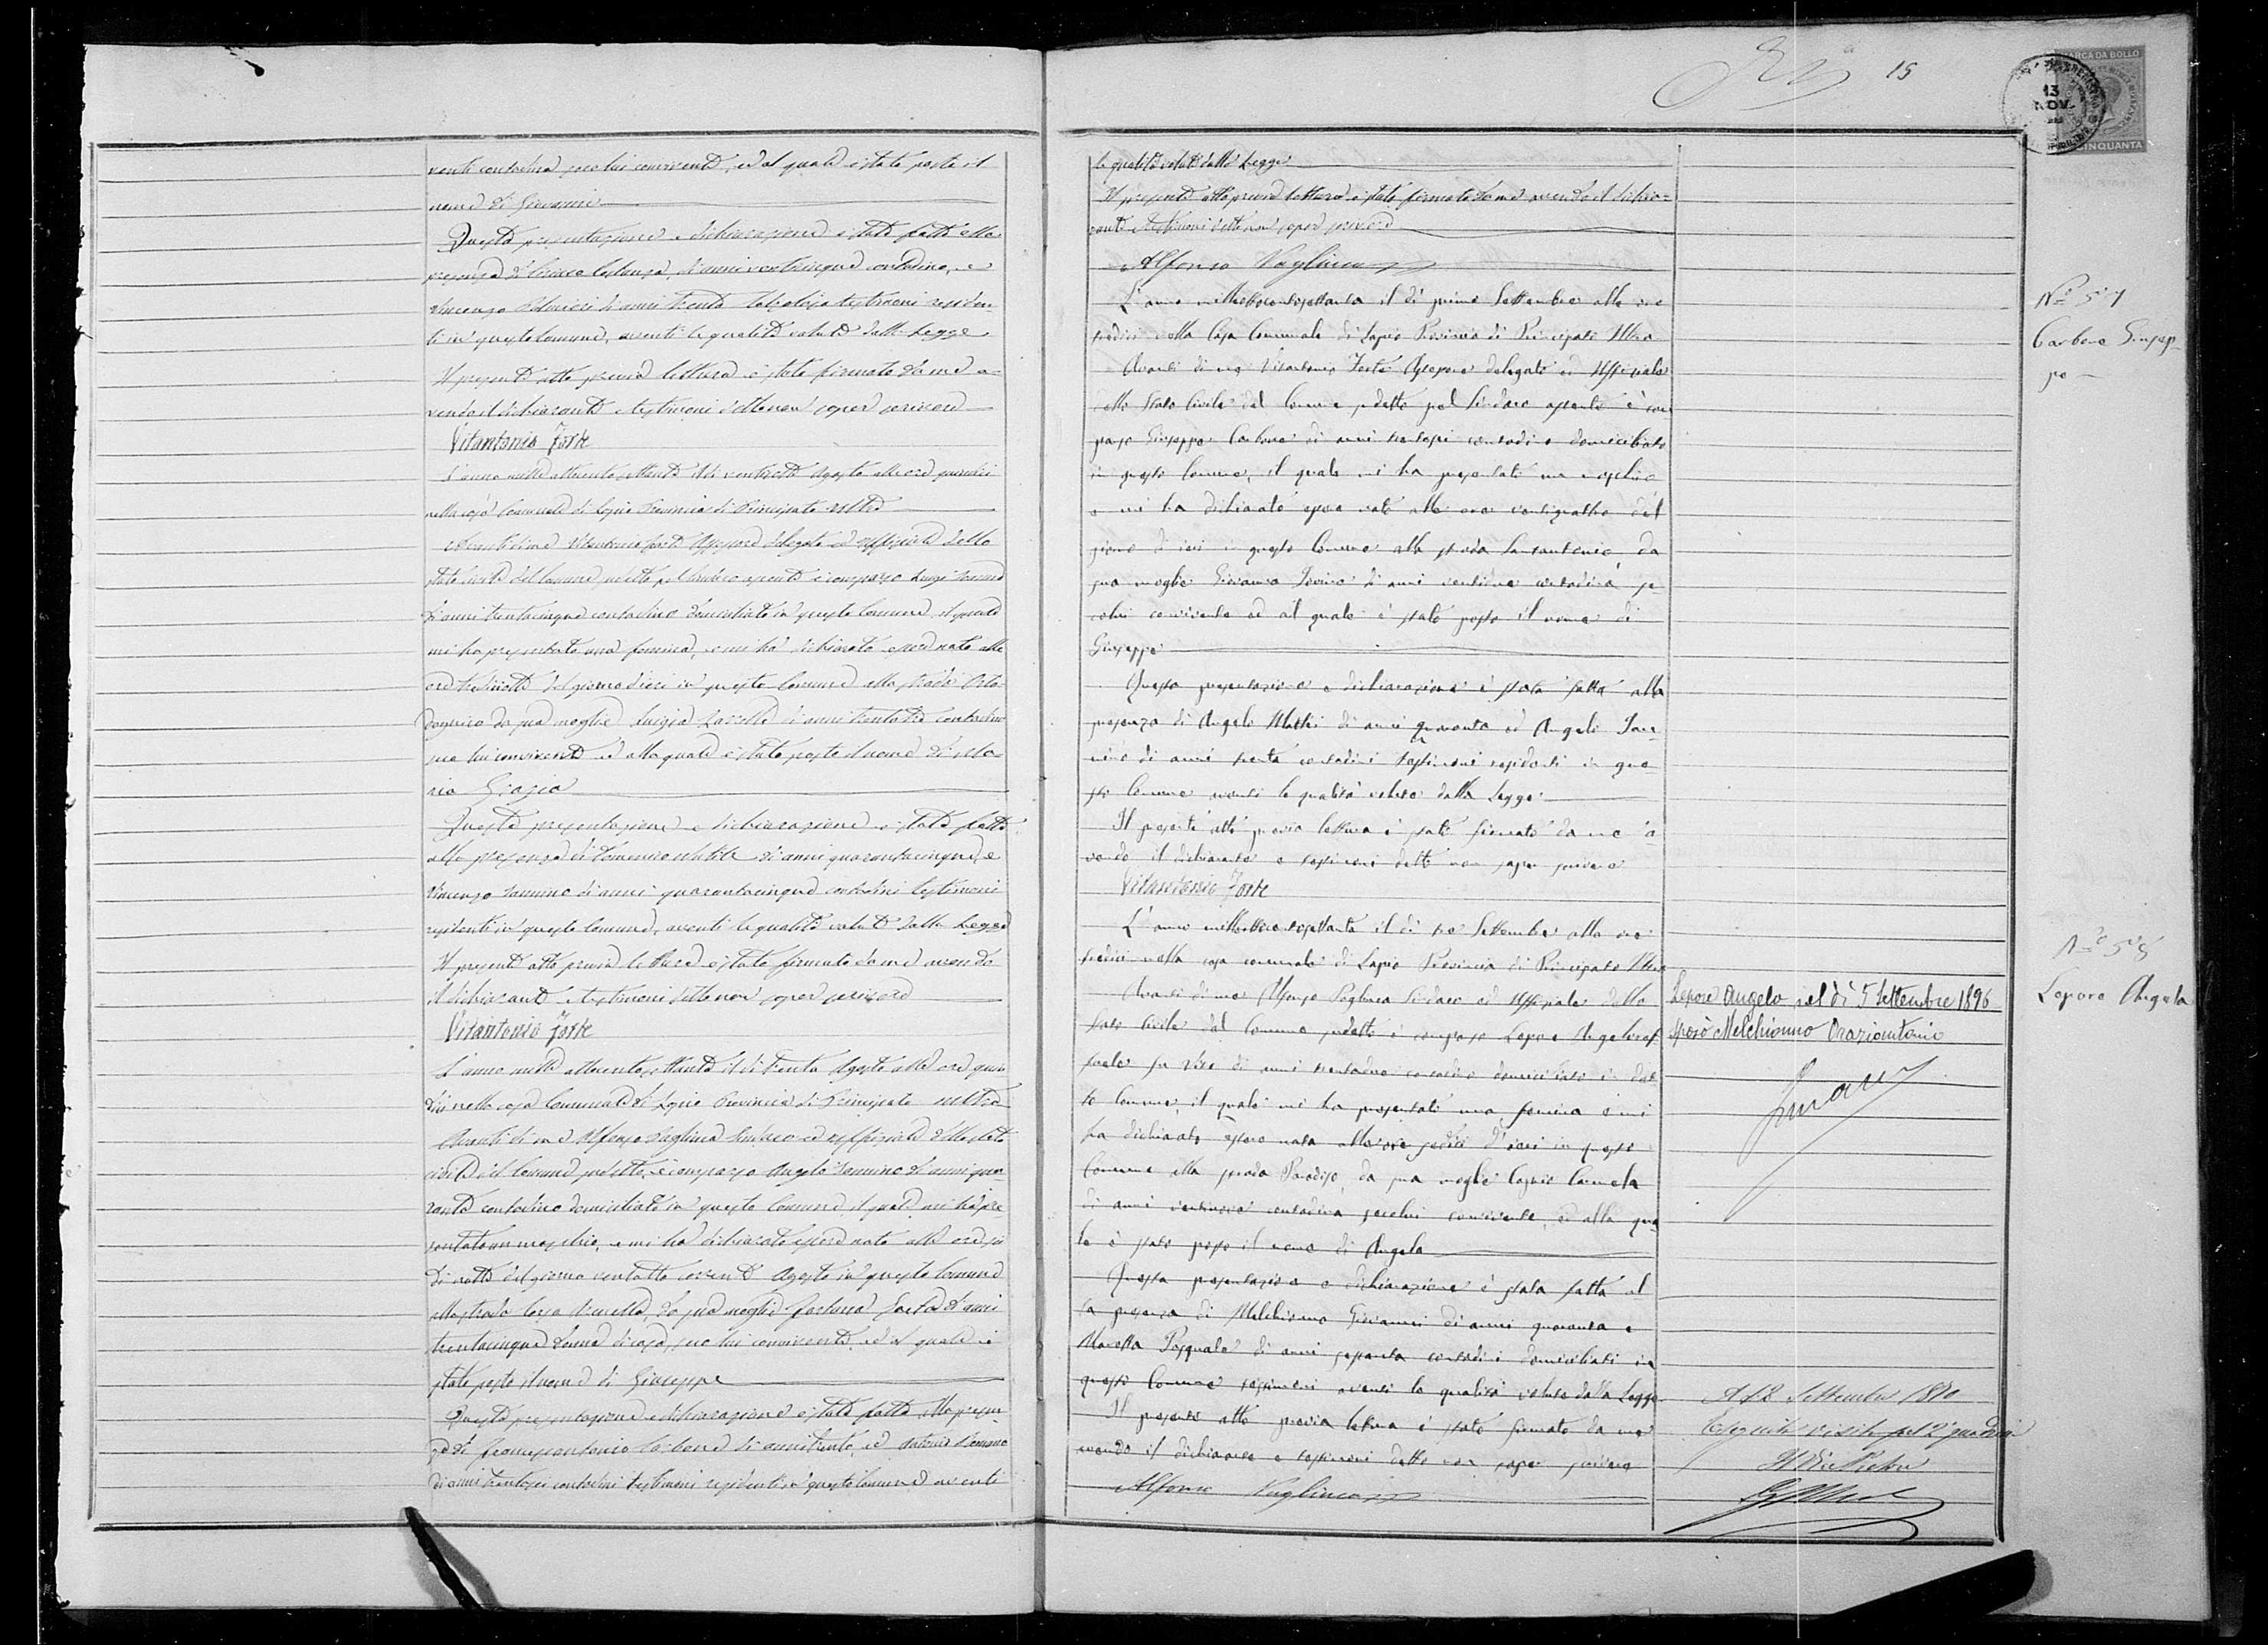 venti contadina seco lui convivente, ed al quale è stato posto il
nome di Giovanni
Questa presentazione e dichiarazione è stata fatta alla
presenza di Costanza, di anni venticinque contadino, e
Vincenzo Palmieri di anni trenta testimoni residen-
ti in questo Comune, aventi le qualità volute dalla Legge
Il presente atto previa lettura è stato firmato da me a-
vendo il dichiarante e testimoni detto non saper scrivere
Vitantonio Forte
L'anno mille ottocento settanta il dì ventisette Agosto alle ore quindici
nella casa Comunale di Lapio Provincia di Principato Ultra
Avanti di me Vitantonio Forte Assessore delegato ed uffiziale dello
stato civile del Comune sudetto pel Sindaco assente è comparso Luigi
di anni trentacinque contadino domiciliato in questo Comune, il quale
mi ha presentato una femina, e mi ha dichiarato essere nata alle
ore del giorno di ieri in questo Comune alla strada Orto-
domnico da sua moglie Luigia di anni trentatre contadina
seco lui convivente ed alla quale è stato posto il nome di Ma-
ria Grazia
Questa presentazione e dichiarazione è stata fatta
alla presenza di Domenico di anni quarantacinque, e
Vincenzo Iannino di anni quarantacinque contadini testimoni
residenti in questo Comune, aventi le qualità volute dalla Legge
Il presente atto previa lettura è stato firmato da me avendo
il dichiarante e testimoni detto non saper scrivere
Vitantonio Forte
L'anno mille ottocento settanta il dì trenta Agosto alle ore quin-
dici nella casa Comunale di Lapio Provincia di Principato Ultra
Avanti di me Alfonso Vagliuca Sindaco ed uffiziale dello stato
civile del Comune sudetto, è comparso Angelo Iannino di anni qua-
ranta contadino domiciliato in questo Comune il quale mi ha pre-
sentato un maschio, e mi ha dichiarato essere nato alle ore sei
di notte del giorno ventotto corrente Agosto in questo Comune
alla strada da sua moglie Fortuna di anni
trentacinque donna di casa, seco lui convivente, ed al quale è
stato posto il nome di Giuseppe
Questa presentazione e dichiarazione è stata fatta alla presen-
za di Francescantonio Carbone di anni trenta, ed Antonio Romano
di anni trentasei contadini testimoni residenti in questo Comune aventi
15
MARCA DA BOLLO
13
NOV.
CINQUANTA
le qualità volute dalla Legge
Il presente atto previa lettura è stato firmato da me avendo il dichia-
rante e testimoni detto non saper scrivere
Alfonso Vagliuca
L'anno milleottocentosettanta il dì primo Settembre alle ore
tredici nella Casa Comunale di Lapio Provincia di Principato Ultra
Avanti di me Vitantonio Forte Assessore delegato ed Uffiziale
dello Stato Civile del Comune sudetto pel Sindaco assente è com-
parso Giuseppe Carbone di anni trentasei contadino domiciliato
in questo Comune, il quale mi ha presentato un maschio
e mi ha dichiarato essere nato alle ore ventiquattro del
giorno di ieri in questo Comune alla strada Santantonio da
sua moglie Giovanna Iovino di anni ventidue contadina se
colui convivente ed al quale è stato posto il nome di
Giuseppe
Questa presentazione e dichiarazione è stata fatta alla
presenza di Angelo Mattis di anni quaranta ed Angelo Ian-
nino di anni trenta contadini testimoni residenti in que
sto Comune aventi le qualità volute dalla Legge
Il presente atto previa lettura è stato firmato da me a
vendo il dichiarante e testimoni detto non saper scrivere
Vitantonio Forte
L'anno milleottocentosettanta il dì tre Settembre alle ore
tredici nella casa comunale di Lapio Provincia di Principato Ultra
Avanti di me Alfonso Vagliuca Sindaco ed Uffiziale dello
stato civile del Comune sudetto è comparso Lepore Angeloraf
faele fu Vito di anni trentadue contadino domiciliato in det
to Comune, il quale mi ha presentato una femina e mi
ha dichiarato essere nata alle ore sedici d'ieri in questo
Comune alla strada Paradiso, da sua moglie Carmela
di anni ventinove contadina secolui convivente, ed alla qua
le è stato posto il nome di Angela
Questa presentazione e dichiarazione è stata fatta al
la presenza di Melchionno Giovanni di anni quaranta e
Pasquale di anni sessanta contadini domiciliati in
questo Comune testimoni aventi le qualità volute dalla Legge
Il presente atto previa lettura è stato firmato da me
avendo il dichiarante e testimoni detto non saper scrivere
Alfonso Vagliuca
No 57
Carbone Giusep-
pe
No 58
Lepore Angela
Lepore Angela, nel dì 5 Settembre 1896
sposò Melchionno Orazioantonio
A dì 12 Settembre 1870
Eseguita visita pel 2° quadri
Il Vice Pretore